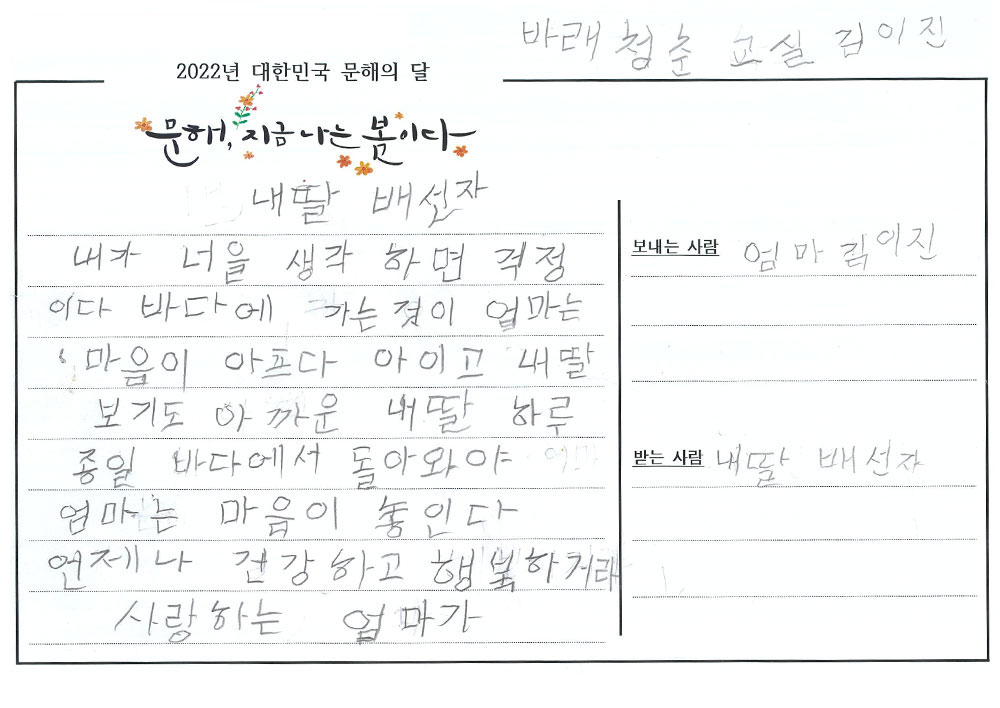 바래 청춘 교실 김이진
2022년 대한민국 문해의 달
문해, 지금 나는 봄이다
내딸 배선자
내가 너을 생각 하면 걱정
이다 바다에 가는 젖이 엄마는
마음이 아프다 아이고 내딸
보기도 아까운 내딸 하루
종일 바다에서 돌아와야
엄마는 마음이 놓인다
언제나 건강하고 행복하거라
사랑하는 엄마가
보내는 사람 엄마 김이진
받는 사람 내딸 배선자